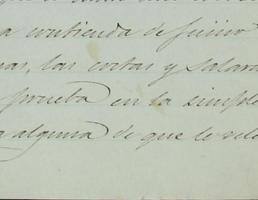 a contienda de juicio
nas, las costas y salari
prueba en la simple
a alguna de que le rele